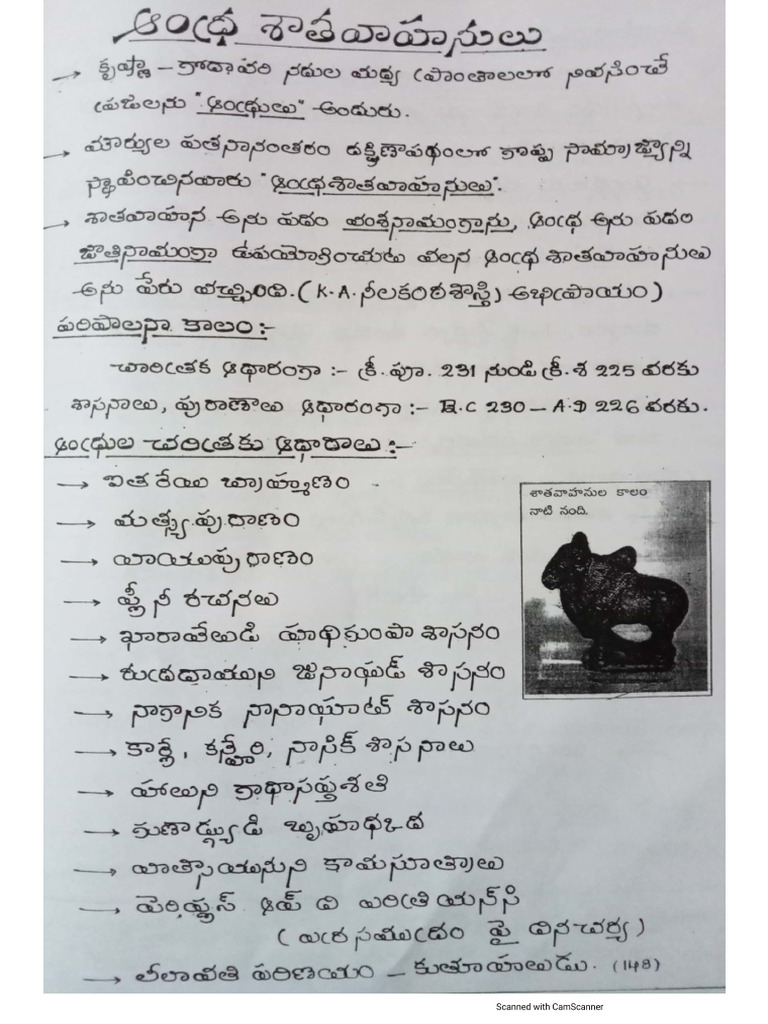 ఆంధ్ర శాతవాహనులు
→ కృష్ణా – గోదావరి నదుల మధ్య ప్రాంతాలలో నివసించే
ప్రజలను "ఆంధ్రులు" అందురు.
→ మౌర్యుల పతనానంతరం దక్షిణాపథంలో గొప్ప సామ్రాజ్యాన్ని
స్థాపించినవారు "ఆంధ్రశాతవాహనులు".
→ శాతవాహన అను పదం వంశనామంగాను, ఆంధ్ర అను పదం
జాతినామంగా ఉపయోగించుట వలన ఆంధ్ర శాతవాహనులు
అను పేరు వచ్చింది. (K.A. నీలకంఠశాస్త్రి అభిప్రాయం)
పరిపాలనా కాలం :-
చారిత్రక ఆధారంగా :- క్రీ. పూ. 231 నుండి క్రీ.శ 225 వరకు
శాసనాలు, పురాణాలు ఆధారంగా :- B.C 230 – A.D 226 వరకు.
ఆంధ్రుల చరిత్రకు ఆధారాలు :-
→ ఐతరేయ బ్రాహ్మణం
→ మత్స్య పురాణం
→ వాయుపురాణం
→ ప్లీనీ రచనలు
→ ఖారవేలుడి హథిగుంఫా శాసనం
→ రుద్రదాముని జునాఘడ్ శాసనం
→ నాగానిక నానాఘాట్ శాసనం
→ కార్లే, కన్హేరి, నాసిక్ శాసనాలు
→ హాలుని గాథాసప్తశతి
→ గుణాఢ్యుడి బృహత్కథ
→ వాత్సాయనుని కామసూత్రాలు
→ పెరిప్లస్ ఆఫ్ ది ఎరిత్రియన్‌సి
(ఎర్రసముద్రం పై దినచర్య)
→ లీలావతి పరిణయం – కుతూహలుడు. (148)
శాతవాహనుల కాలం
నాటి నంది.
Scanned with CamScanner